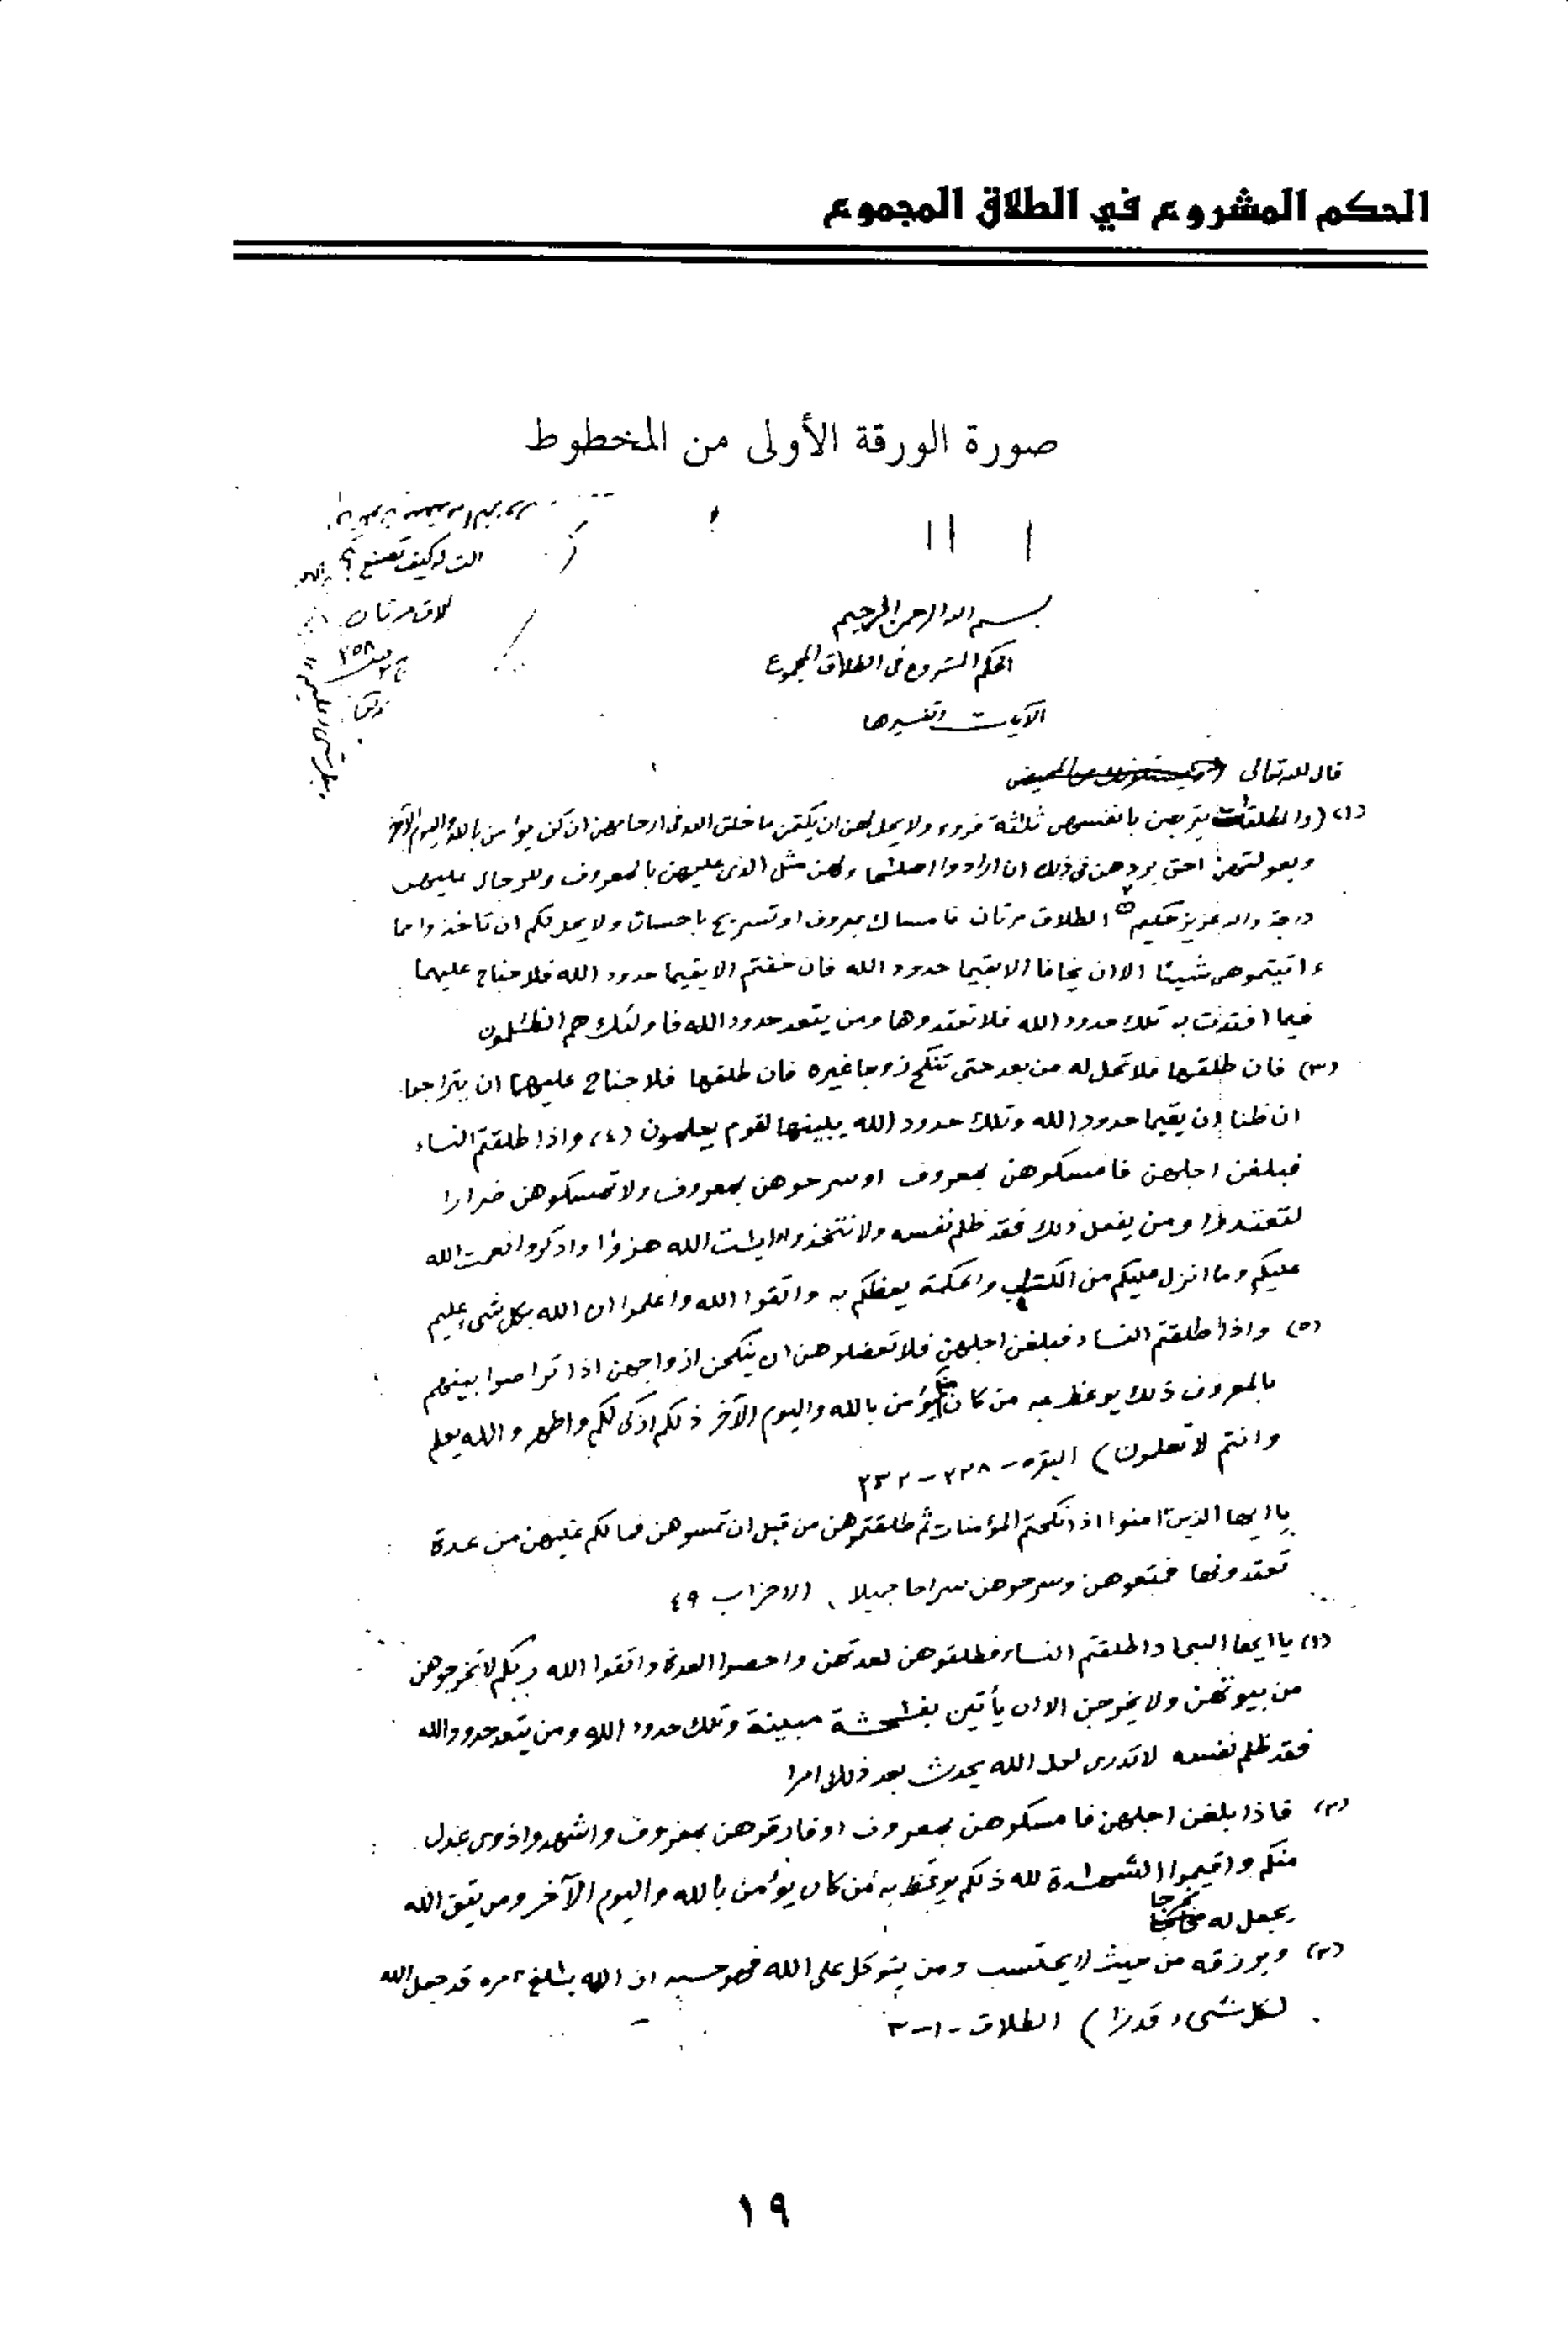 الحكم المشروع في الطلاق المجموع
صورة الورقة الأولى من المخطوط
كيف تصنع؟
مرتان
٢٥٨
بسم الله الرحمن الرحيم
الحكم المشروع فى الطلاق المجموع
الآيات وتفسيرها
قال الله تعالى
(١) (والمطلقات يتربصن بانفسهن ثلثة قروء ولا يحل لهن ان يكتمن ما خلق الله فى ارحامهن ان كن يؤمن بالله واليوم الآخر
وبعولتهن احق بردهن فى ذلك ان ارادوا اصلحا ولهن مثل الذى عليهن بالمعروف وللرجال عليهن
درجة والله عزيز حكيم (٢) الطلاق مرتان فامساك بمعروف او تسريح باحسان ولا يحل لكم ان تاخذوا مما
ءاتيتموهن شيئا الا ان يخافا الا يقيما حدود الله فان خفتم الا يقيما حدود الله فلا جناح عليهما
فيما افتدت به تلك حدود الله فلا تعتدوها ومن يتعد حدود الله فاولئك هم الظلمون
(٣) فان طلقها فلا تحل له من بعد حتى تنكح زوجا غيره فان طلقها فلا جناح عليهما ان يتراجعا
ان ظنا ان يقيما حدود الله وتلك حدود الله يبينها لقوم يعلمون (٤) واذا طلقتم النساء
فبلغن اجلهن فامسكوهن بمعروف او سرحوهن بمعروف ولا تمسكوهن ضرارا
لتعتدوا ومن يفعل ذلك فقد ظلم نفسه ولا تتخذوا ايت الله هزوا واذكروا نعمت الله
عليكم وما انزل عليكم من الكتب والحكمة يعظكم به واتقوا الله واعلموا ان الله بكل شىء عليم
(٥) واذا طلقتم النساء فبلغن اجلهن فلا تعضلوهن ان ينكحن ازواجهن اذا تراضوا بينهم
بالمعروف ذلك يوعظ به من كان منكم يؤمن بالله واليوم الآخر ذلكم ازكى لكم واطهر والله يعلم
وانتم لا تعلمون) البقره - ٢٢٨ - ٢٣٢
يا ايها الذين امنوا اذا نكحتم المؤمنات ثم طلقتموهن من قبل ان تمسوهن فما لكم عليهن من عدة
تعتدونها فمتعوهن وسرحوهن سراحا جميلا، الاحزاب ٤٩
(١) يا ايها النبى اذا طلقتم النساء فطلقوهن لعدتهن واحصوا العدة واتقوا الله ربكم لا تخرجوهن
من بيوتهن ولا يخرجن الا ان يأتين بفحشة مبينة وتلك حدود الله ومن يتعد حدود الله
فقد ظلم نفسه لا تدرى لعل الله يحدث بعد ذلك امرا
(٢) فاذا بلغن اجلهن فامسكوهن بمعروف او فارقوهن بمعروف واشهدوا ذوى عدل
منكم واقيموا الشهدة لله ذلكم يوعظ به من كان يؤمن بالله واليوم الآخر ومن يتق الله
يجعل له مخرجا
(٣) ويرزقه من حيث لا يحتسب ومن يتوكل على الله فهو حسبه ان الله بلغ امره قد جعل الله
لكل شىء قدرا) الطلاق - ١ - ٣
١٩